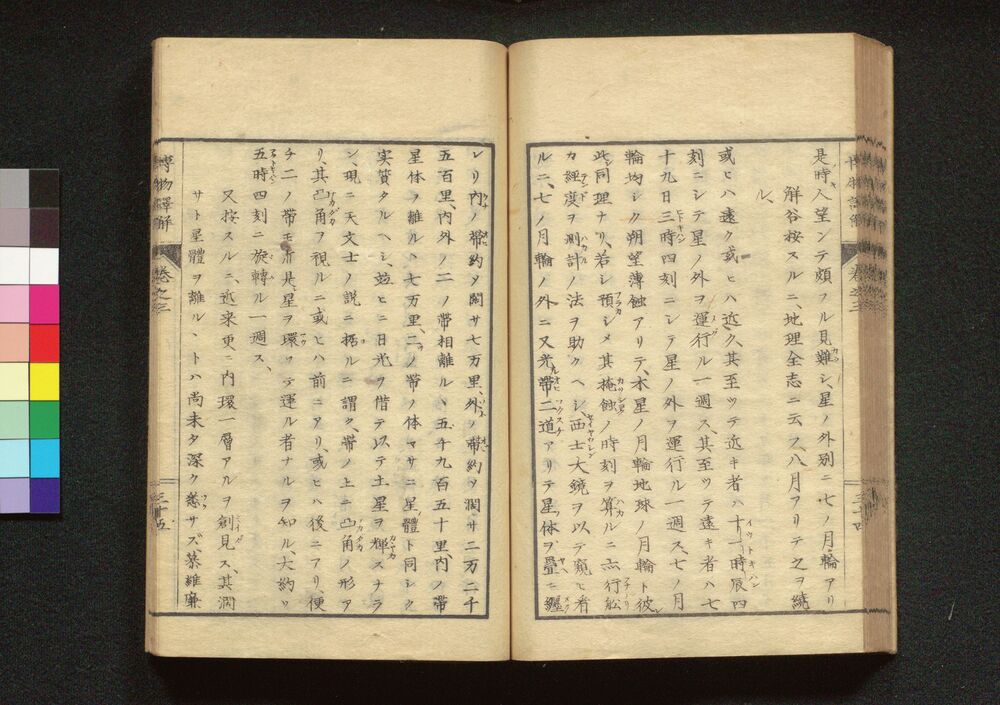 是時入望ンテ頗フル見難シ、星ノ外別ニ七ノ月輪アリ
解谷按スルニ、地理全志ニ云フ、八月アリテ之ヲ繞
ル、
或ヒハ遠ク或ヒハ近ク、其至ツテ近キ者ハ十一時辰四
刻ニシテ星ノ外ヲ運行ル一週ス、其至ツテ遠キ者ハ七
十九日三時四刻ニシテ星ノ外ヲ運行ル一週ス、七ノ月
輪均シク朔望薄蝕アリテ、木星ノ月輪地球ノ月輪ト彼
此同理ナリ、若シ預シメ其掩蝕ノ時刻ヲ算ルニ亦行舩
カ經度ヲ測計ノ法ヲ助クヘシ、西士大鏡ヲ以テ窺ヒ看
ルニ、七ノ月輪ノ外ニ又光帶二道アリテ星体ヲ疊ニ纒
博物譯解
卷之三
三十四
レリ内ノ帶約ソ闊サ七万里、外ノ帶約ソ濶サ二万二千
五百里、内外ノ二ノ帶相離ルヽ五千九百五十里、内ノ帶
星体ヲ離ルヽ七万里、二ノ帶ノ体マサニ星體ト同シク
実質タルヘシ、並ヒニ日光ヲ借テ以テ土星ヲ輝スナラ
ン、現ニ天文士ノ説ニ據ルニ謂ク、帶ノ上ニ凸角ノ形ア
リ、其凸角ヲ視ルニ或ヒハ前ニアリ、或ヒハ後ニアリ便
チ二ノ帶モ亦是星ヲ環ツテ運ル者ナルヲ知ル、大約ソ
五時四刻ニ旋轉ル一週ス、
又按スルニ、近来更ニ内環一層アルヲ創見ス、其濶
サト星體ヲ離ルヽトハ尚未タ深ク悉サズ、慕維廉
博物譯解
卷之三
三十五